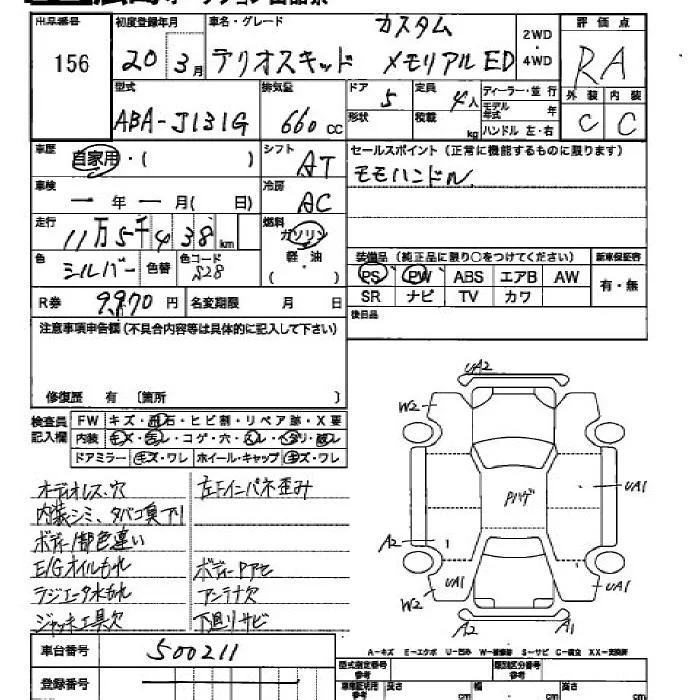 出品番号 156
初度登録年月 20 3月
車名・グレード テリオスキッド カスタム メモリアルED
2WD・4WD
評価点 RA
外装 C 内装 C
型式 ABA-J131G
排気量 660 CC
ドア 5
定員 4人
形状
積載 kg
ディーラー・並行
モデル年式 年
ハンドル 左・右
車歴 自家用・( )
シフト AT
セールスポイント (正常に機能するものに限ります)
モモハンドル
車検 一 年 一 月( 日)
冷房 AC
走行 11万5千438 km
燃料 ガソリン 軽・油 ( )
色 シルバー 色替
色コード S28
装備品 (純正品に限り○をつけてください)
新車保証書 有・無
PS PW ABS エアB AW
SR ナビ TV カワ
R券 9,970 円
名変期限 月 日
後日品
注意事項申告欄 (不具合内容等は具体的に記入して下さい)
修復歴 有 〔箇所 〕
検査員記入欄
FW キズ・飛石・ヒビ割・リペア跡・X要
内装 キズ・コゲ・穴
ドアミラー キズ・ワレ ホイール・キャップ キズ・ワレ
オーディオレス・穴
内装シミ、タバコ臭
ボディー1部色違い
E/Gオイルもれ
ラジエータ水もれ
ジャッキ工具欠
左Fインパネ歪み
ボディーPアセ
アンテナ欠
下廻りサビ
UA2
W2
Pハゲ
UA1
A2
UA1
UA1
W2
A2
A1
A-キズ E-エクボ U-凹み W-補修跡 S-サビ C-腐食 XX-交換済
車台番号 500211
登録番号
型式指定番号 参考
類別区分番号 参考
車庫証明用 参考
長さ cm 幅 cm 高さ cm